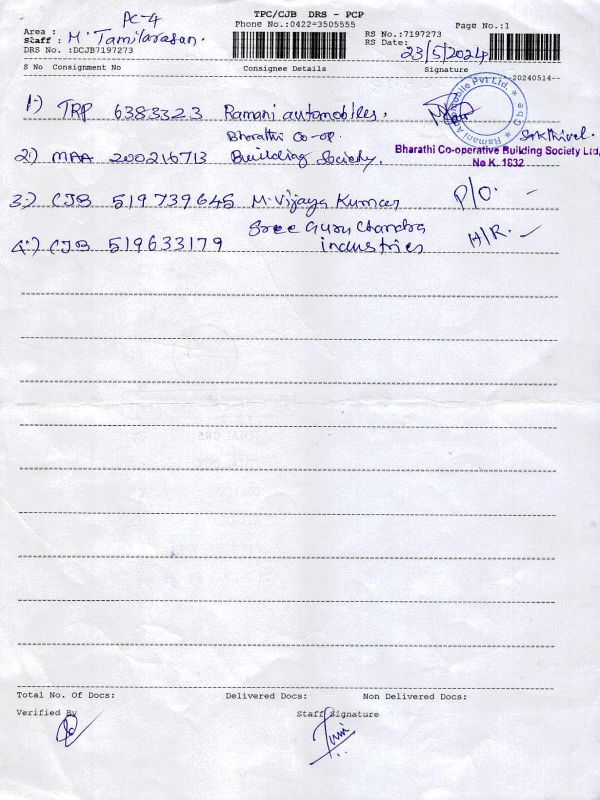 TPC/CJB DRS - PCP
PC-4
Area :
Phone No.:0422=3505555
Page No.:1
Staff : M. Tamilarasan.
RS No.:7197273
DRS No. :DCJB7197273
RS Date: 23/5/2024
S No Consignment No Consignee Details Signature
20240514
1.) TRP 6383323 Ramani automobiles.
Ramani Automobile Pvt Ltd. ★ Cbe ★
Bharathi Co-op.
Sakthivel.
2.) MAA 200216713 Building Society.
Bharathi Co-operative Building Society Ltd,
No K. 1832
3.) CJB 519739645 M. Vijaya Kumar P/O. -
Sree Guru Chandra
4.) CJB 519633179 industries H/R. -
Total No. Of Docs: Delivered Docs: Non Delivered Docs:
Verified By Staff Signature